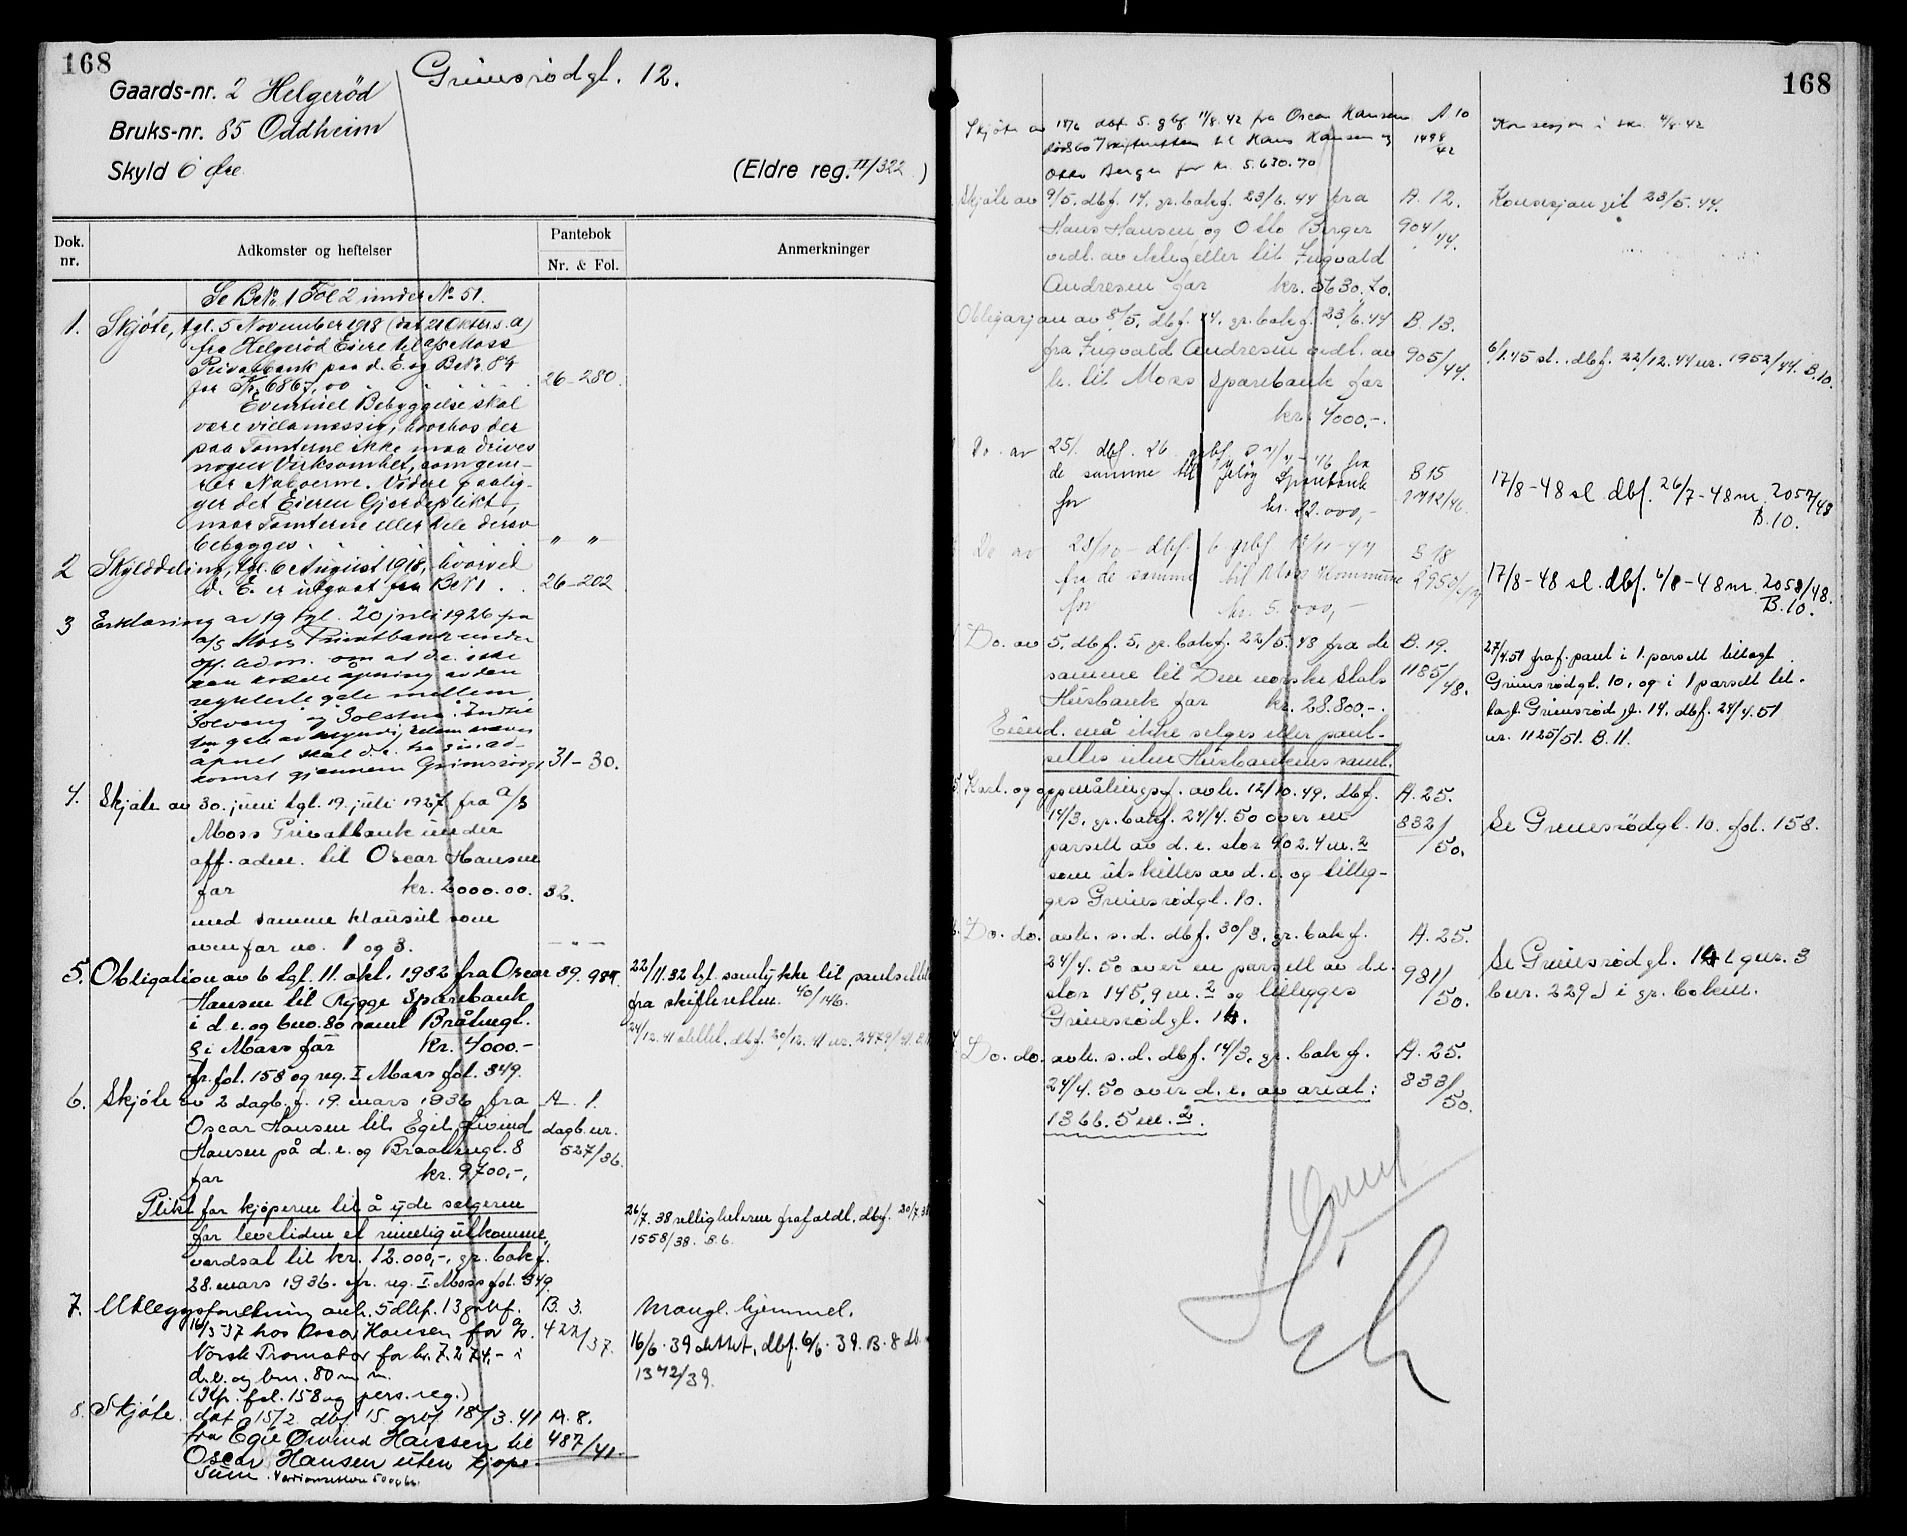 168
Grimsrødgl. 12.
Gaards-nr. 2 Helgerød
Bruks-nr. 85 Oddheim
Skyld 6 Øre
(Eldre reg. II/322 )
Dok. nr.
Adkomster og heftelser
Pantebok
Nr. & Fol.
Anmerkninger
Se B.No 1 Fol 2 under No 51.
1. Skjøte, tgl. 5 November 1918 (dat 21 Okter s. a)
fra Helgerød Eiere til a/s Moss
Privatbank paa d. E. og B.No 84
for Kr. 6867,00 26-280.
Eventuel Bebyggelse skal
være villamæssig, hvorhos der
paa Tomterne ikke maa drives
nogen Virksomhet, som gene-
rer Naboerne. Videre paalig-
ger det Eieren Gjerdeplikt,
naar Tomterne eller hele derav
bebygges. " "
2 Skylddeling, tgl. 6 August 1918, hvorved
d. E. er utgaat fra B.No 1 . . 26-202
3 Erklæring av 19 tgl. 20 juli 1926 fra
a/s Moss Privatbank under
off. adm. om at d.e. ikke
kan kreve åpning av den
regulerte gate mellem
"Solvang" og "Solstua".
åpnet skal d.e. ha sin ad-
komst gjennem Grimsrødgt. 31-30.
4. Skjøte av 30. juni tgl. 19. juli 1927 fra a/s
Moss Privatbank under
off. adm. til Oscar Hansen
for kr. 2000.00. 32.
med samme klausul som
ovenfor no. 1 og 3. — " —
5. Obligation av 6 tgl. 11. okt. 1932 fra Oscar 39. 984.
Hansen til Rygge Sparebank
i d.e. og bno. 80 samt Bråtengt.
8 i Moss for kr. 4000.-
fr. fol. 158 og reg. I Moss fol. 349.
22/11.32 tgl. samtykke til pantsettelse
fra skifteretten. 40/146.
24/12.41 slettet, dbf. 20/12.41 nr. 2479/41. B.
6. Skjøte av 2 dagb.f. 19. mars 1936 fra A. 1.
Oscar Hansen til Egil Øivind dagb.nr.
Hansen på d.e. og Braatengt. 8 527/36.
for kr. 9700,-,
Plikt for kjøperen til å yde selgeren
for levetiden et rimelig utkomme,
verdsat til kr. 12.000,-, gr. bok f.
28. mars 1936. fr. reg. I. Moss fol. 349.
26/7.38 rettighetene frafaldt, dbf. 20/7.38
1558/38. B.6.
7. Utleggsforretning avh. 5 dbf. 13 grbf. B. 3.
16/3 37 hos Oscar Hansen for a/s. 422/37.
Norsk Tromotor for kr. 7.274,- i
d.e. og bnr. 80 m.m.
(Kfr. fol. 158 og pers. reg.)
Mangl. hjemmel.
16/6-39 slettet, dbf. 6/6-39. B. 8 db.
1342/39.
8. Skjøte. dat 15/2. dbf. 15. grbf 18/3.41 A. 8.
fra Egil Øivind Hansen til 487/41
Oscar Hansen uten kjøpe-
sum.
168
Skjøte av 18/6 dbf. 5. gbf 11/8.42 fra Oscar Hansens A 10
dødsbo v/skifteretten til Hans Hansen og 1498/42
Otto Berger for kr 5.630.70
Konsesjon i skr. 4/8.42
Skjøte av 9/5. dbf. 14. gr.bok f. 23/6.44 fra A. 12.
Hans Hansen og Otto Berger 904/44.
vedl. av ektefeller til Ingvald
Andresen for kr. 5630.70.
Konsesjon git 23/5.44.
Obligasjon av 8/5. dbf. 14. gr.bok f. 23/6.44 B. 13.
fra Ingvald Andresen vedt. av 905/44.
h. til Moss Sparebank for
kr. 4000.-.
6/1.45 sl. dbf. 22/12.44 nr. 1952/44. B.10.
Do. av 25/. dbf. 26. fra
de samme til Jeløy Sparebank B 15
for kr. 22.000,-
17/8-48 sl. dbf. 26/7-48 nr. 2057/48
B.10.
Do av 28/10 - dbf. 6. grbf 13/11-47 B 18
fra de samme til Moss Kommune
for kr. 5.000,-
17/8-48 sl. dbf. 6/8-48 nr. 2058/48.
B.10.
Do. av 5. dbf. 5. gr.bok f. 22/5.48 fra de B. 19.
samme til Den norske Stats 1185/48.
Husbank for kr. 28.800.-.
Eiend. må ikke selges eller pant-
settes uten Husbankens samt.
27/4.51 fraf. pant i 1 parsell tillagt
Grimsrødgt. 10, og i 1 parsell til-
lagt Grimsrødgt. 14, dbf. 24/4.51
nr. 1125/51. B.11.
Kart. og oppmålingsf. avh. 12/10.49. dbf. A. 25.
14/3. gr. bok f. 24/4.50 over en 832/50.
parsell av d.e. stor 402.4 m.2
som utskilles av d.e. og tilleg-
ges Grimsrødgt. 10.
Se Grimsrødgl. 10. fol. 158.
Do. do. avh. s.d. dbf. 30/3. gr. bok f. A. 25.
24/4.50 over en parsell av d.e. 981/50.
stor 145,9 m.2 og tillegges
Grimsrødgl. 14.
Se Grimsrødgl. 14 gnr. 3
bnr. 229 i gr. boken.
Do. do. avh. s.d. dbf. 14/3, gr. bok f. A. 25.
24/4.50 over d.e. av areal: 833/50.
1366.5 m.2.